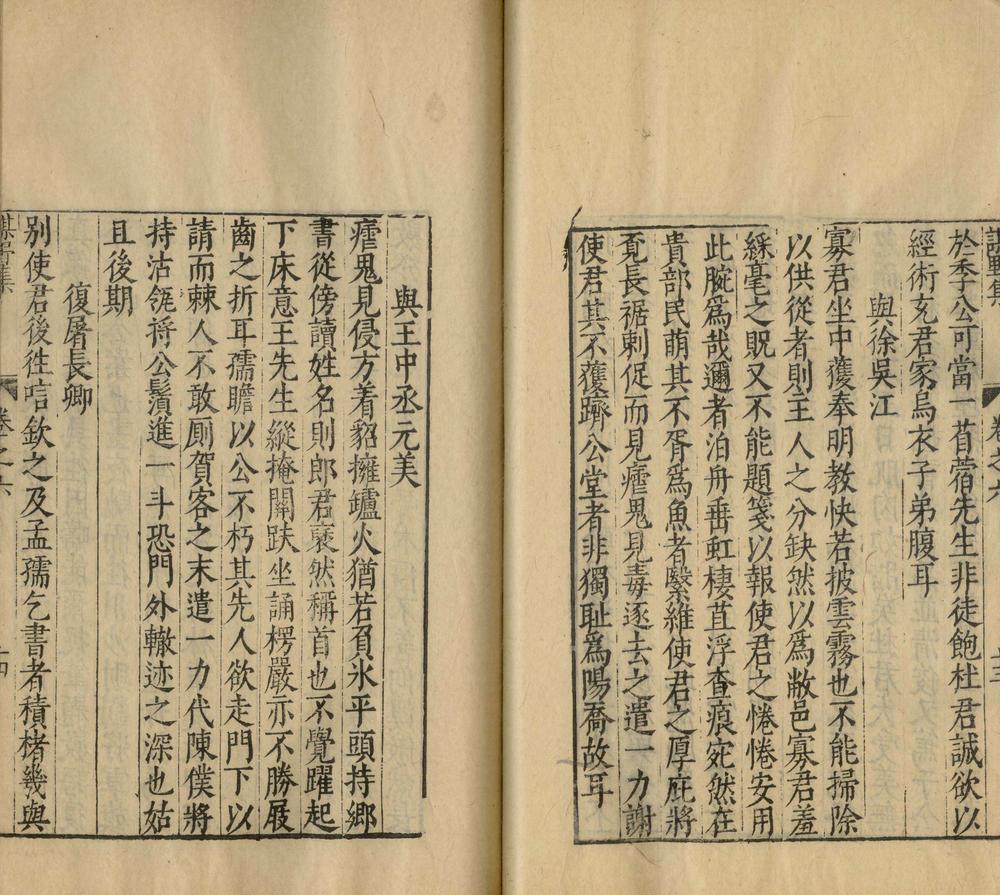 卷之六
於季公可當一苜蓿先生非徒飽杜君誠欲以
經術充君家烏衣子弟腹耳
與徐吳江
寡君坐中獲奉明教快若披雲霧也不能掃除
以供從者則主人之分缺然以爲敝邑寡君羞
綵毫之貺又不能題箋以報使君之惓惓安用
此腕爲哉邇者泊舟垂虹棲苴浮查痕宛然在
貴部民萌其不胥爲魚者繄維使君之厚庇將
覔長裾刺促而見瘧鬼見毒逐去之遣一力謝
使君其不獲躋公堂者非獨耻爲陽喬故耳
與王中丞元美
瘧鬼見侵方着貂擁鑪火猶若負氷平頭持鄉
書從傍讀姓名則郎君裒然稱首也不覺躍起
下床意王先生縱掩關趺坐誦楞嚴亦不勝屐
齒之折耳孺瞻以公不朽其先人欲走門下以
請而棘人不敢厠賀客之末遣一力代陳僕將
持沽瓻捋公鬚進一斗恐門外轍迹之深也姑
且後期
復屠長卿
別使君後徃唁欽之及孟孺乞書者積楮幾與
卷之六